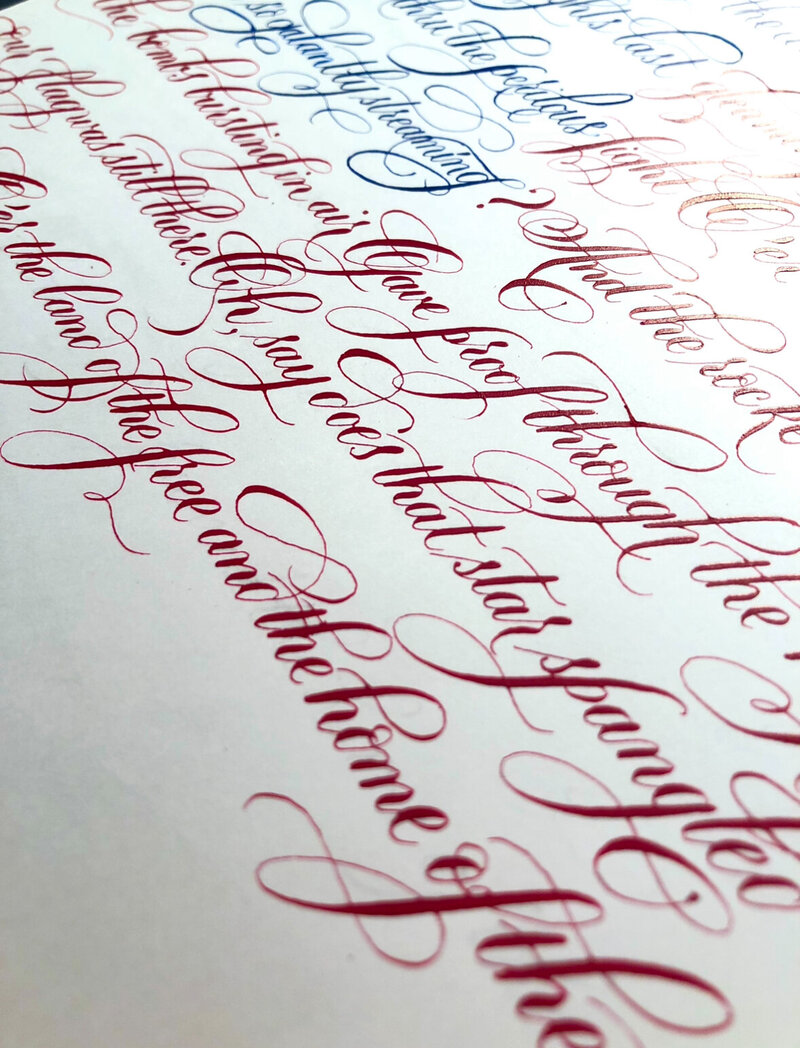 the
ghts last
thru the perilous fight O'er
so galantly streaming? And the rocke
the bombs bursting in air Gave proof through the
our flag was still there. Oh, say does that star spangled
O'er the land of the free and the home of the